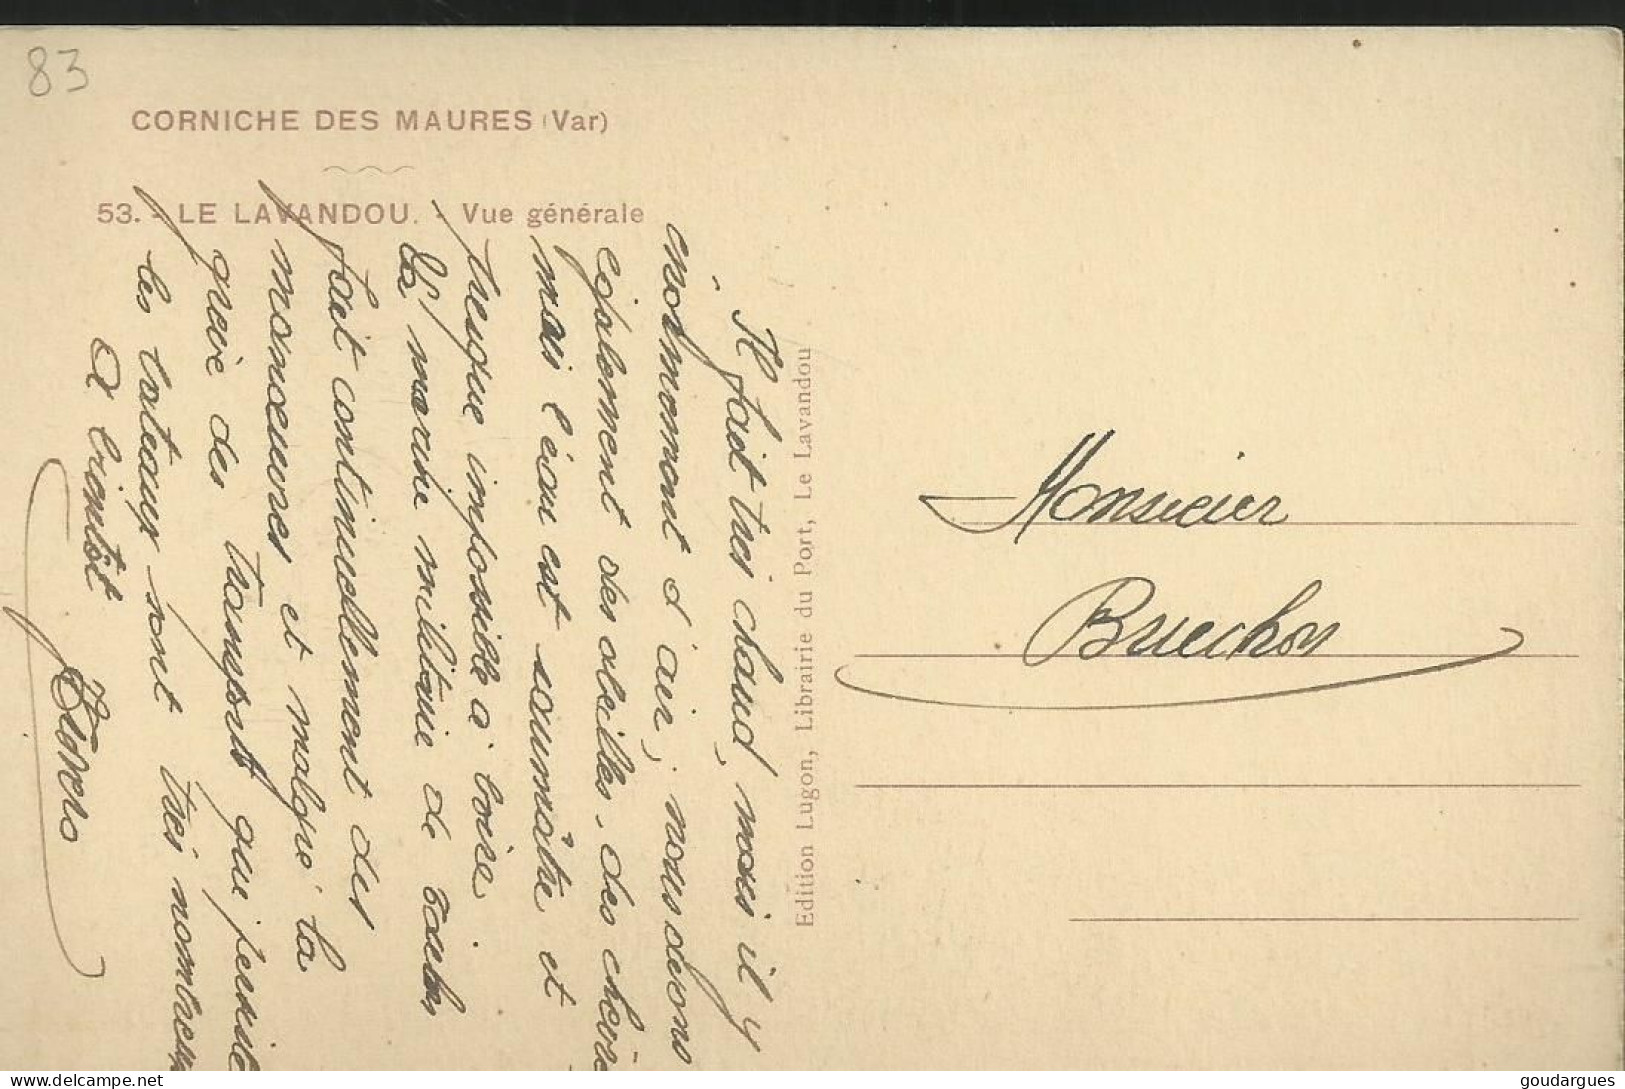 83
CORNICHE DES MAURES (Var)
53. - LE LAVANDOU. - Vue générale
Il fait très chaud, mais il y
énormément d'air, nous avons
également des abeilles, des chèvre
mais l'eau est saumâtre et
presque impossible à boire.
La marine militaire de Toulon
fait continuellement des
manœuvres et malgré la
grève des transports qui persiste
les bateaux sont très nombreux
A bientôt
Edition Lugon, Librairie du Port, Le Lavandou
Monsieur
Bruchon
delcampe.net
goudargues